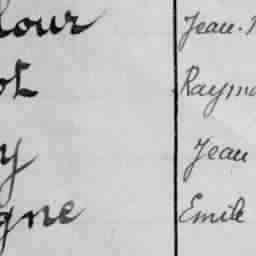 lour Jean-
ot Raym
y Jean
gne Emile